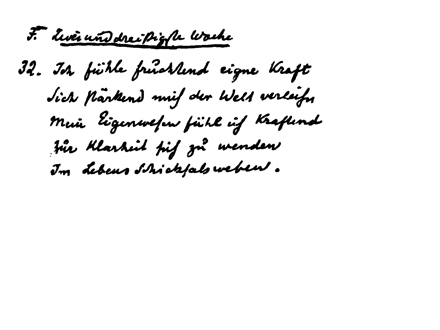 F. Zweiunddreißigste Woche
32. Ich fühle fruchtend eigne Kraft
Sich stärkend mich der Welt verleihn
Mein Eigenwesen fühl ich kraftend
Zur Klarheit sich zu wenden
Im Lebensschicksalsweben.